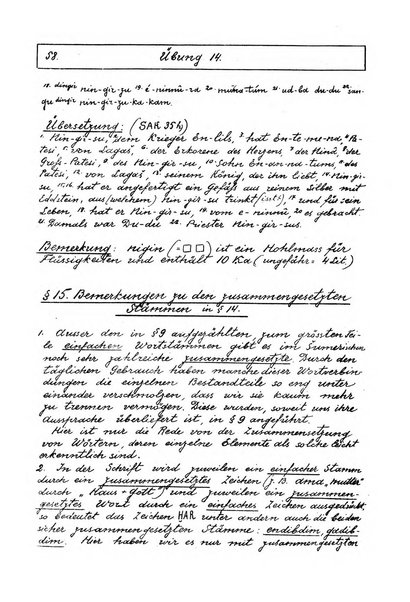 58. Übung 14.
18. dingir nin-gir-zu 19. é-ninnū-ra 20. mūnatúm 21. ud-ba du-du 22. san-
gu dingir nin-gir-zu-ka-kam.
Übersetzung: (SAK 35h)
1. Nin-gir-su, 2. dem Krieger En-lils, 3. hat En-te-me-na, 4. Pa-
tesi 5. von Lagaš, 6. der Erkorene des Herzens 7. der Ninâ, 8. der
Groß-Patesi 9. des Nin-gir-su, 10. Sohn En-an-na-tums, 11. des
Patesi, 12. von Lagaš, 13. seinem König, der ihn liebt, 14. Nin-gir-
su, 15. hat er angefertigt ein Gefäß aus reinem Silber mit
Edelstein, aus (welchem) Nin-gir-su trinkt und für sein
Leben, 18. hat er Nin-gir-su, 19. vom e-ninnū, 20. es gebracht
21. Damals war Du-du 22. Priester Nin-gir-sus.
Bemerkung: nigin (=□□) ist ein Hohlmass für
Flüssigkeiten und enthält 10 Ka (ungefähr = 4 Lit)
§ 15. Bemerkungen zu den zusammengesetzten
Stämmen in § 14.
1. Ausser den in § 9 aufgezählten, zum grössten Tei-
le einfachen Wortstämmen gibt es im Sumerischen
noch sehr zahlreiche zusammengesetzte. Durch den
täglichen Gebrauch haben manche dieser Wortverbin
dungen die einzelnen Bestandteile so eng unter
einander verschmolzen, dass wir sie kaum mehr
zu trennen vermögen. Diese wurden, soweit uns ihre
Aussprache überliefert ist, in § 9 angeführt.
Hier ist nur die Rede von der Zusammensetzung
von Wörtern, deren einzelne Elemente als solche leicht
erkenntlich sind.
2. In der Schrift wird zuweilen ein einfacher Stamm
durch ein zusammengesetztes Zeichen (z. B. ama „mutter"
durch „Haus + Gott") und zuweilen ein zusammen-
gesetztes Wort durch ein einfaches Zeichen ausgedrückt,
so bedeutet das Zeichen HAR unter andern auch die beiden
sicher zusammengesetzten Stämme: endibdim, gedib-
dim. Hier haben wir es nur mit zusammengesetzten